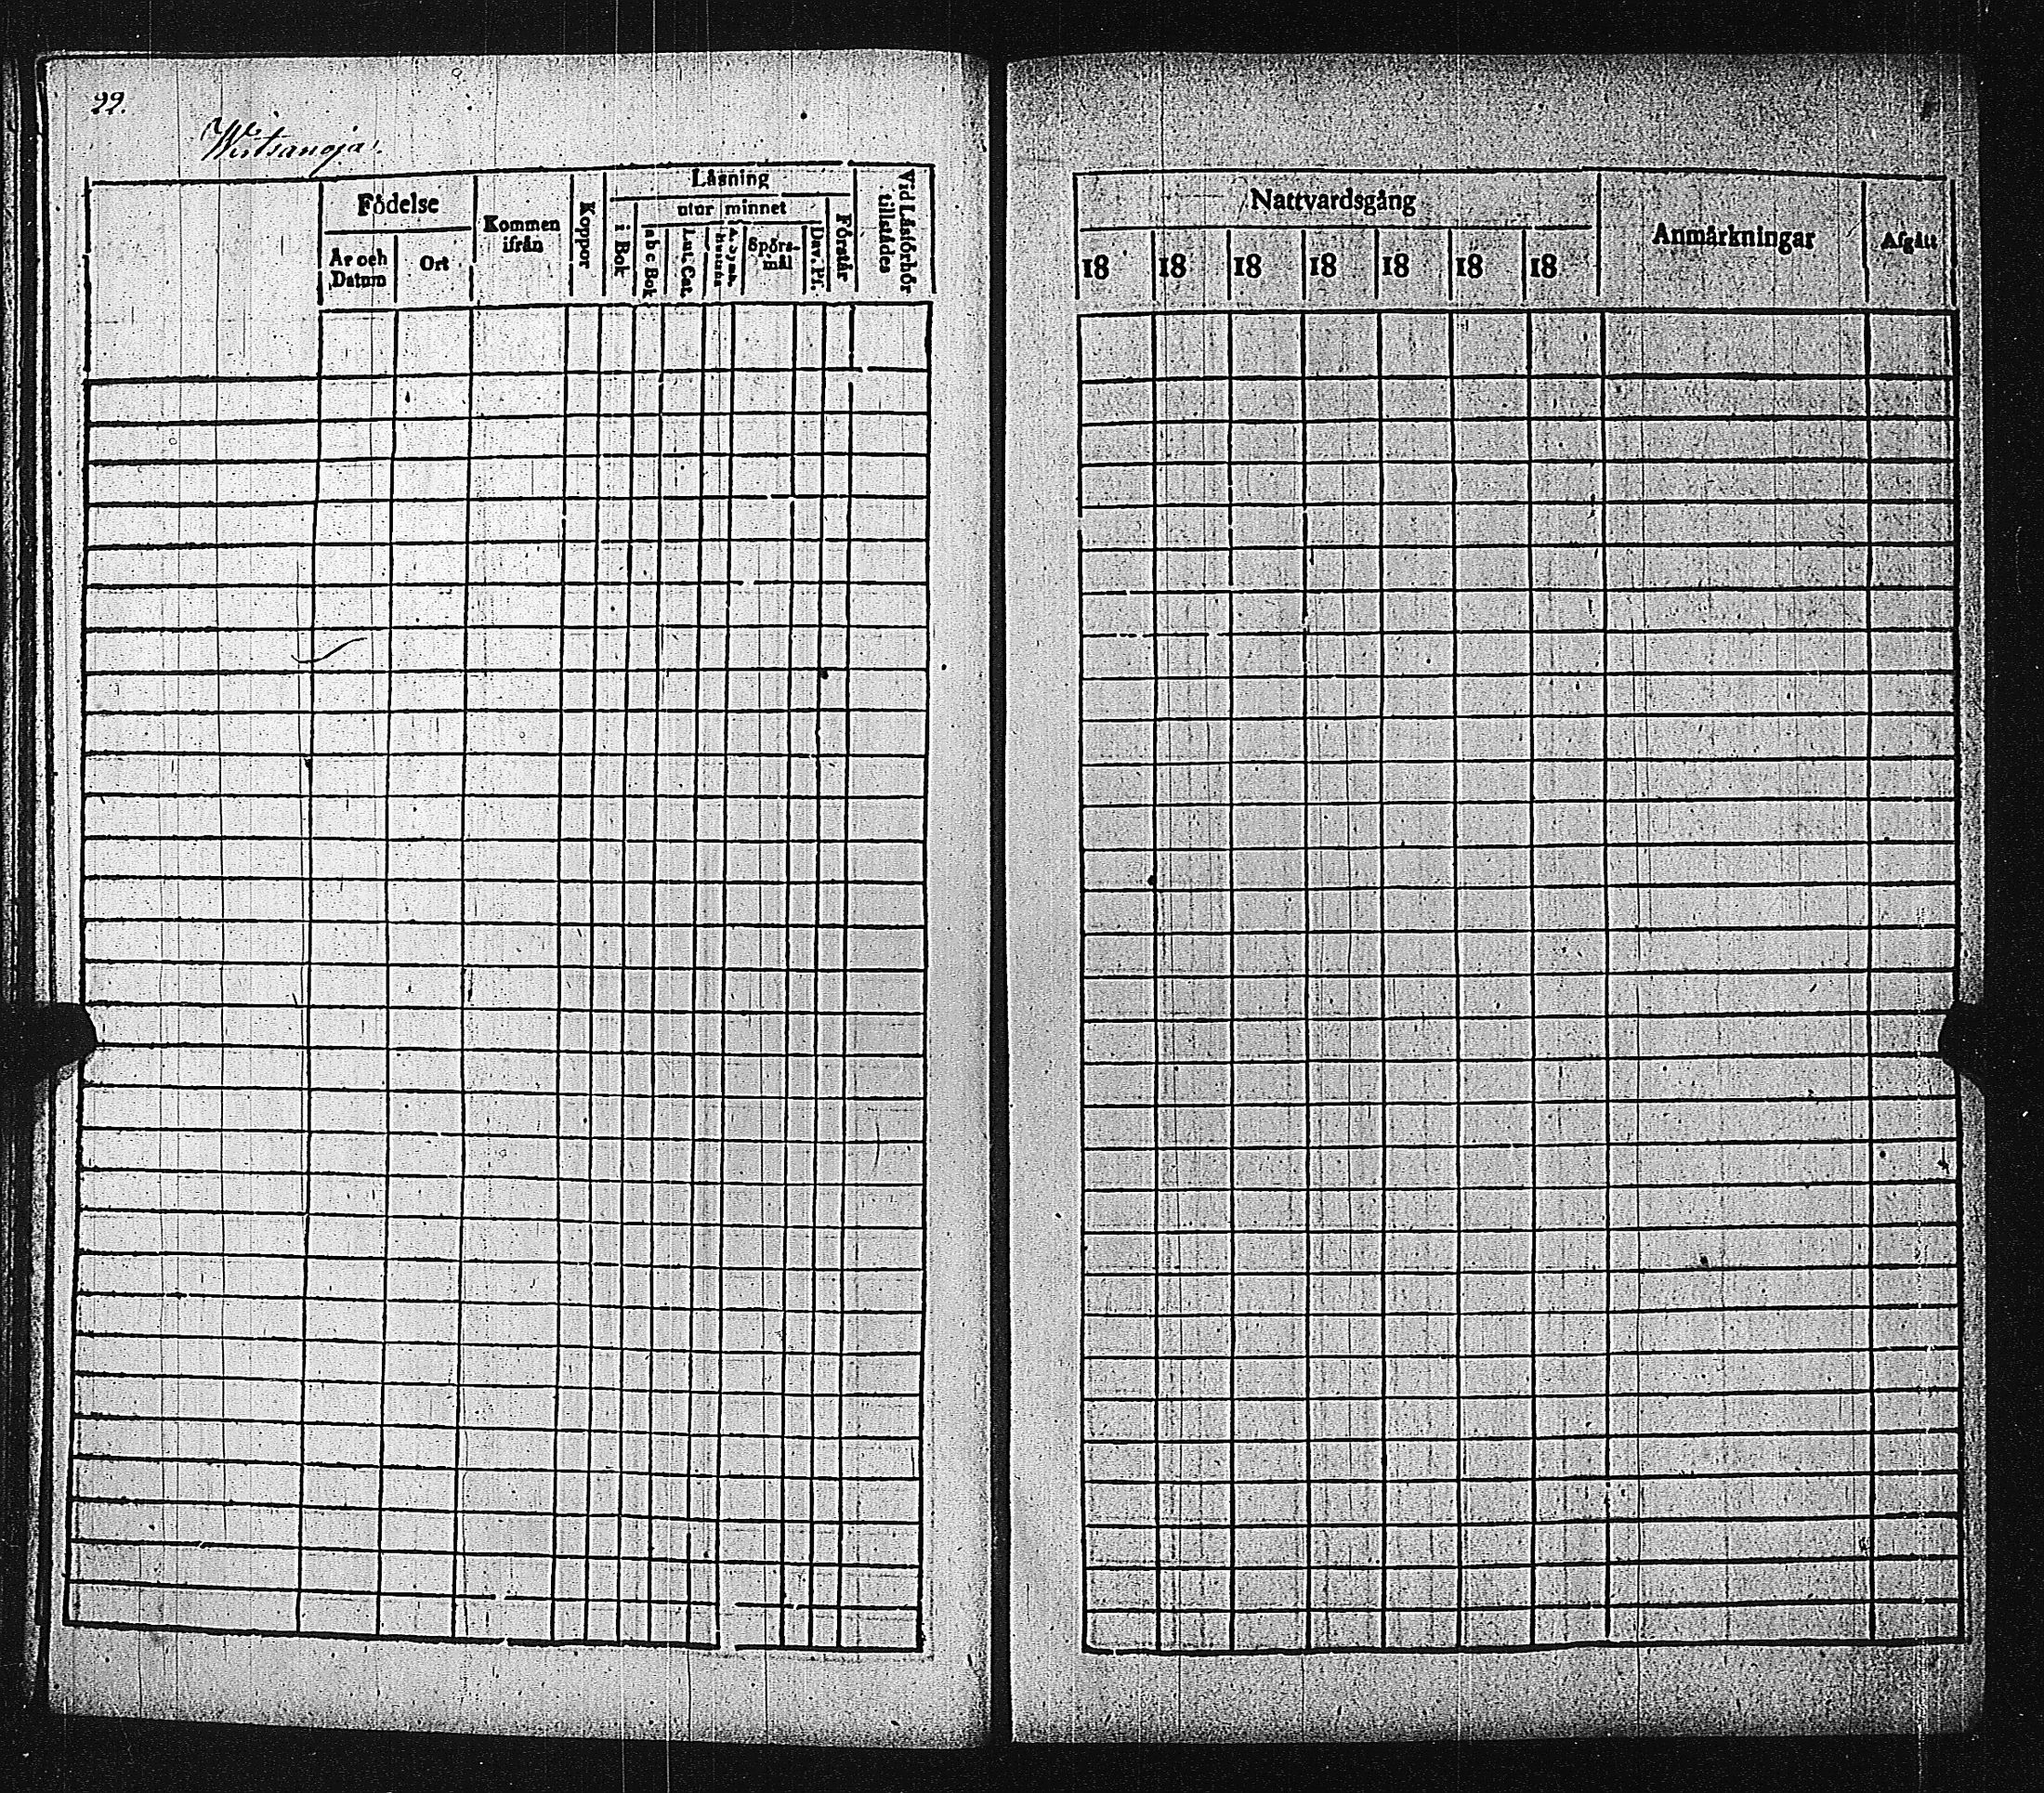 22.
Wirtsanoja.
Födelse
År och Datum
Ort
Kommen ifrån
Koppor
Läsning
i Bok
utur minnet
abc Bok
Lut. Cat.
Spörs-mål
Dav. Ps.
Förstår
Vid Läsförhör tillstädes
Nattvardsgång
18 18 18 18 18 18 18
Anmärkningar
Afgått